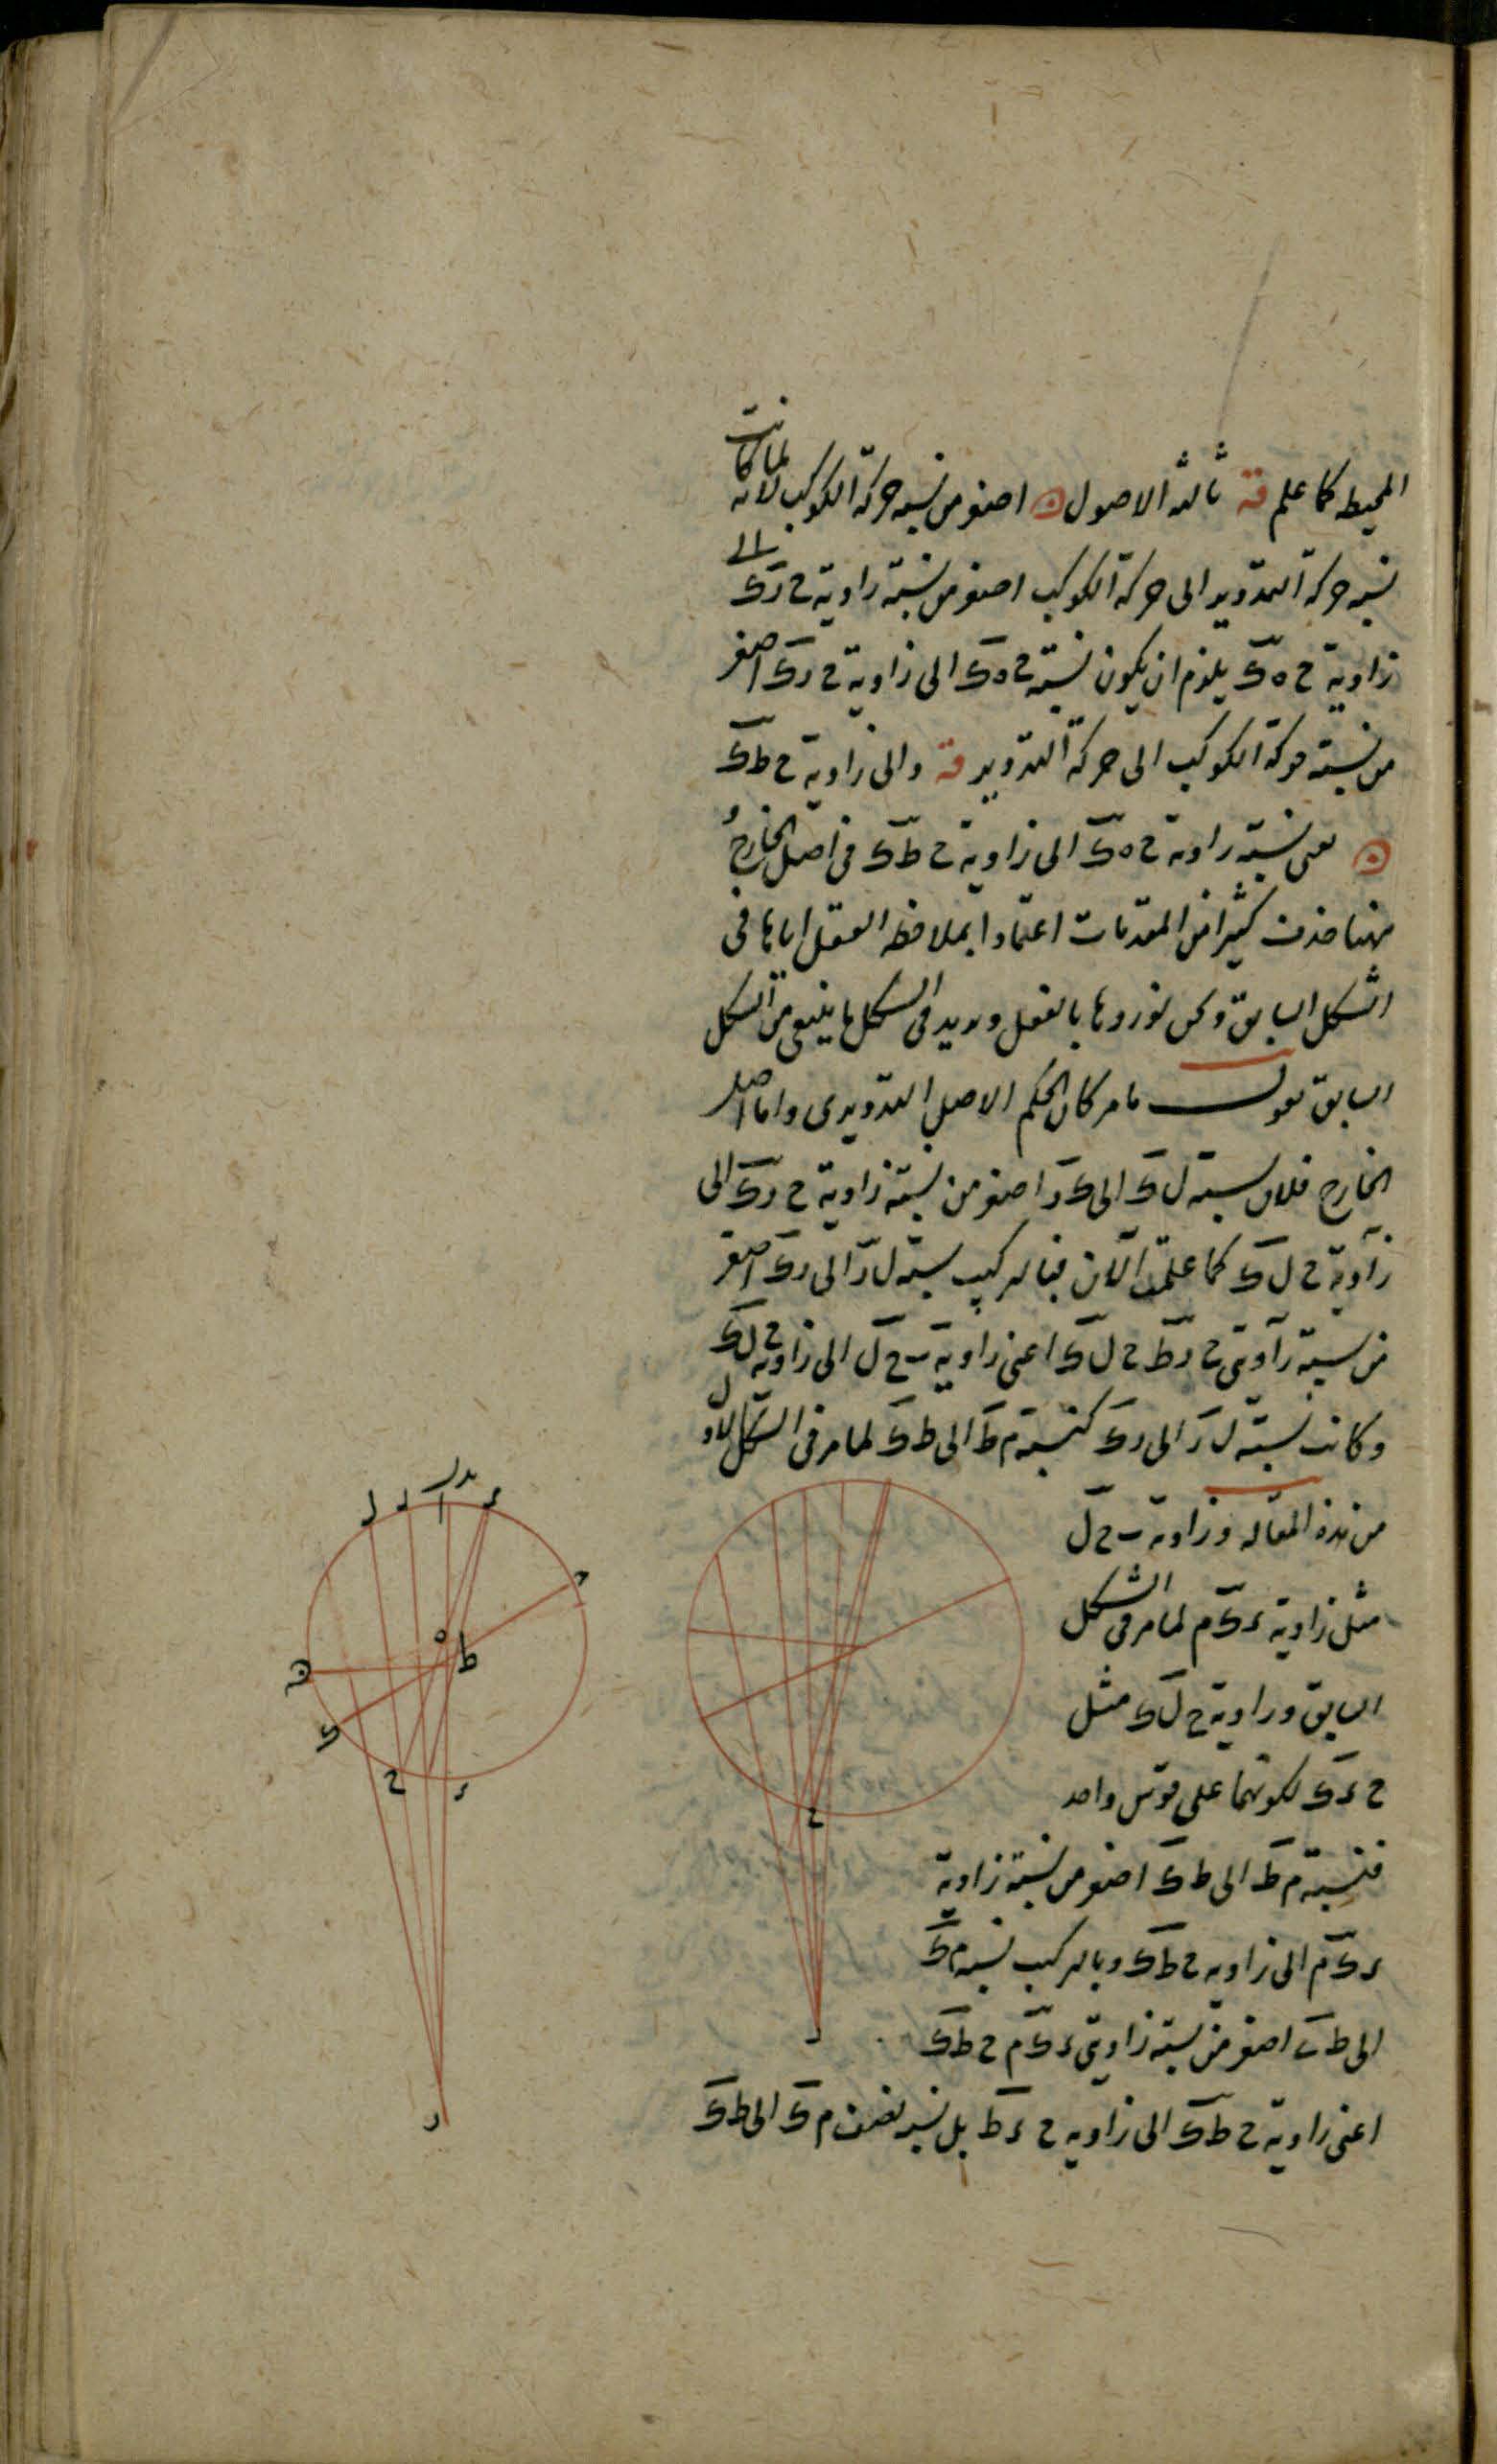 المحيط كما علم قة ثالثة الاصول اصغر من نسبة حركة الكوكب لانه لما كانت
نسبة حركة التدوير الى حركة الكوكب اصغر من نسبة زاوية ح رك الى
زاوية ح ه ك يلزم ان يكون نسبة ح ه ك الى زاوية ح رك اصغر
من نسبة حركة الكوكب الى حركة التدوير قة والى زاوية ح ط ك
يعنى نسبة زاوية ح ه ك الى زاوية ح ط ك فى اصل الخارج و
ههنا حذف كثيرا من المقدمات اعتمادا بملاحظة العقل اياها فى
الشكل السابق ونحن نوردها بالفعل ونزيد فى الشكل ما ينبغى من الشكل
السابق نقول ما مر كان الحكم الاصل التدويرى واما اصل
الخارج فلان نسبة ل ك الى ك ر اصغر من نسبة زاوية ح رك الى
زاوية ح ل ك كما علمت الآن فبالتركيب نسبة ل ر الى رك اصغر
من نسبة زاويتى ح ر ط ح ل ك اعنى زاوية ب ح ل الى زاوية ح ل ك
وكانت نسبة ل ر الى رك كنسبة م ط الى ط ك لما مر فى الشكل الاول
من هذه المقالة وزاوية ب ح ل
مثل زاوية ء ك م لما مر فى الشكل
السابق وزاوية ح ل ك مثل
ح ء ك لكونهما على قوس واحد
فنسبة م ط الى ط ك اصغر من نسبة زاوية
ء ك م الى زاوية ح ط ك وبالتركيب نسبة م ك
الى ط ك اصغر من نسبة زاويتى ء ك م ح ط ك
اعنى زاوية ح ط ك الى زاوية ح ء ط بل نسبة نصف م ك الى ط ك
ه
ط
ك
ح
ء
ر
ح
ر